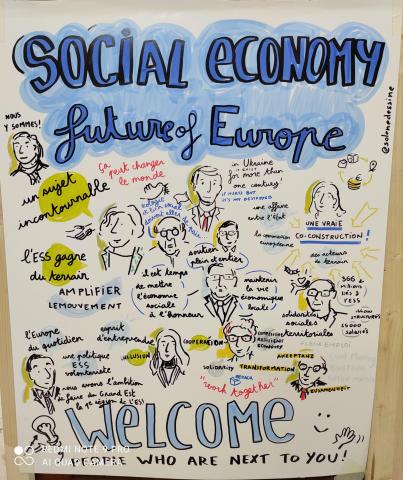 SOCIAL ECONOMY
future of Europe
@solenedessine
NOUS
Y SOMMES!
ça
peut changer
le monde
in Ukraine
for more than
one century
un sujet
incontournable
une affaire
entre l'état
la commission
européenne
UNE VRAIE
CO-CONSTRUCTION!
des acteurs
de terrain
l'ESS gagne
du terrain
AMPLIFIER
LE MOUVEMENT
soutien
plein et entier
il est temps
de mettre
l'économie
sociale
à l'honneur
maintenir
la vie
économique
locale
solidarités
sociales
territoriales
l'Europe
du quotidien
esprit
d'entreprendre
une politique
ESS
volontariste
INCLUSION
COOPERATION
nous avons l'ambition
de faire du Grand Est
la 1e région de l'ESS!
solidarity
TRANSFORMATION
"work together"
AKZEPTANZ
ZUSAMMENHEIT
WELCOME
PEOPLE WHO ARE NEXT TO YOU!
REDMI NOTE 9 PRO
AI QUAD CAMERA